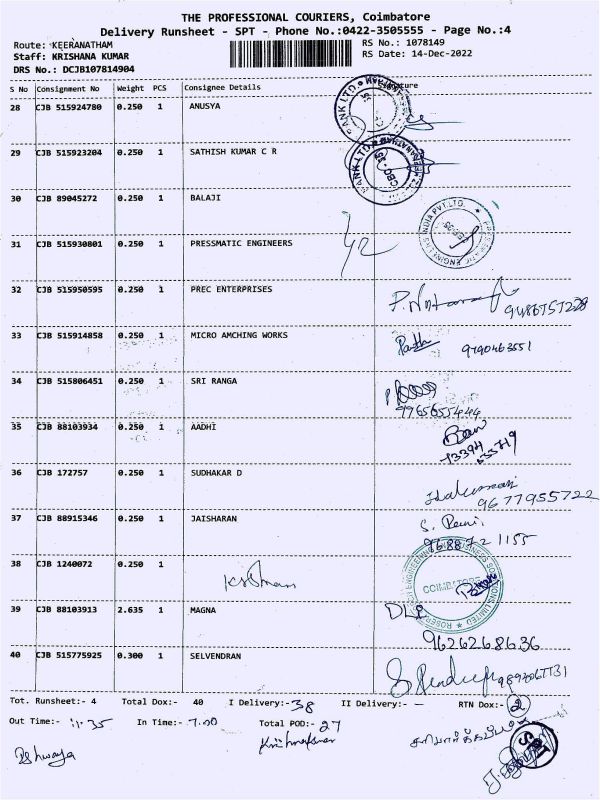 THE PROFESSIONAL COURIERS, Coimbatore
Delivery Runsheet - SPT - Phone No.:0422-3505555 - Page No.:4
Route: KEERANATHAM RS No.: 1078149
Staff: KRISHANA KUMAR RS Date: 14-Dec-2022
DRS No.: DCJB107814904
S No Consignment No Weight PCS Consignee Details Signature
28 CJB 515924780 0.250 1 ANUSYA
29 CJB 515923204 0.250 1 SATHISH KUMAR C R
30 CJB 89045272 0.250 1 BALAJI
31 CJB 515930801 0.250 1 PRESSMATIC ENGINEERS
32 CJB 515950595 0.250 1 PREC ENTERPRISES
33 CJB 515914858 0.250 1 MICRO AMCHING WORKS 9790463551
34 CJB 515806451 0.250 1 SRI RANGA
9965655444
35 CJB 88103934 0.250 1 AADHI
36 CJB 172757 0.250 1 SUDHAKAR D
9677955722
37 CJB 88915346 0.250 1 JAISHARAN
38 CJB 1240072 0.250 1 COIMBATORE
39 CJB 88103913 2.635 1 MAGNA
9626268636
40 CJB 515775925 0.300 1 SELVENDRAN
Tot. Runsheet:- 4 Total Dox:- 40 I Delivery:- 38 II Delivery:- — RTN Dox:- 2
Out Time:- 11.35 In Time:- 7.00 Total POD:- 27